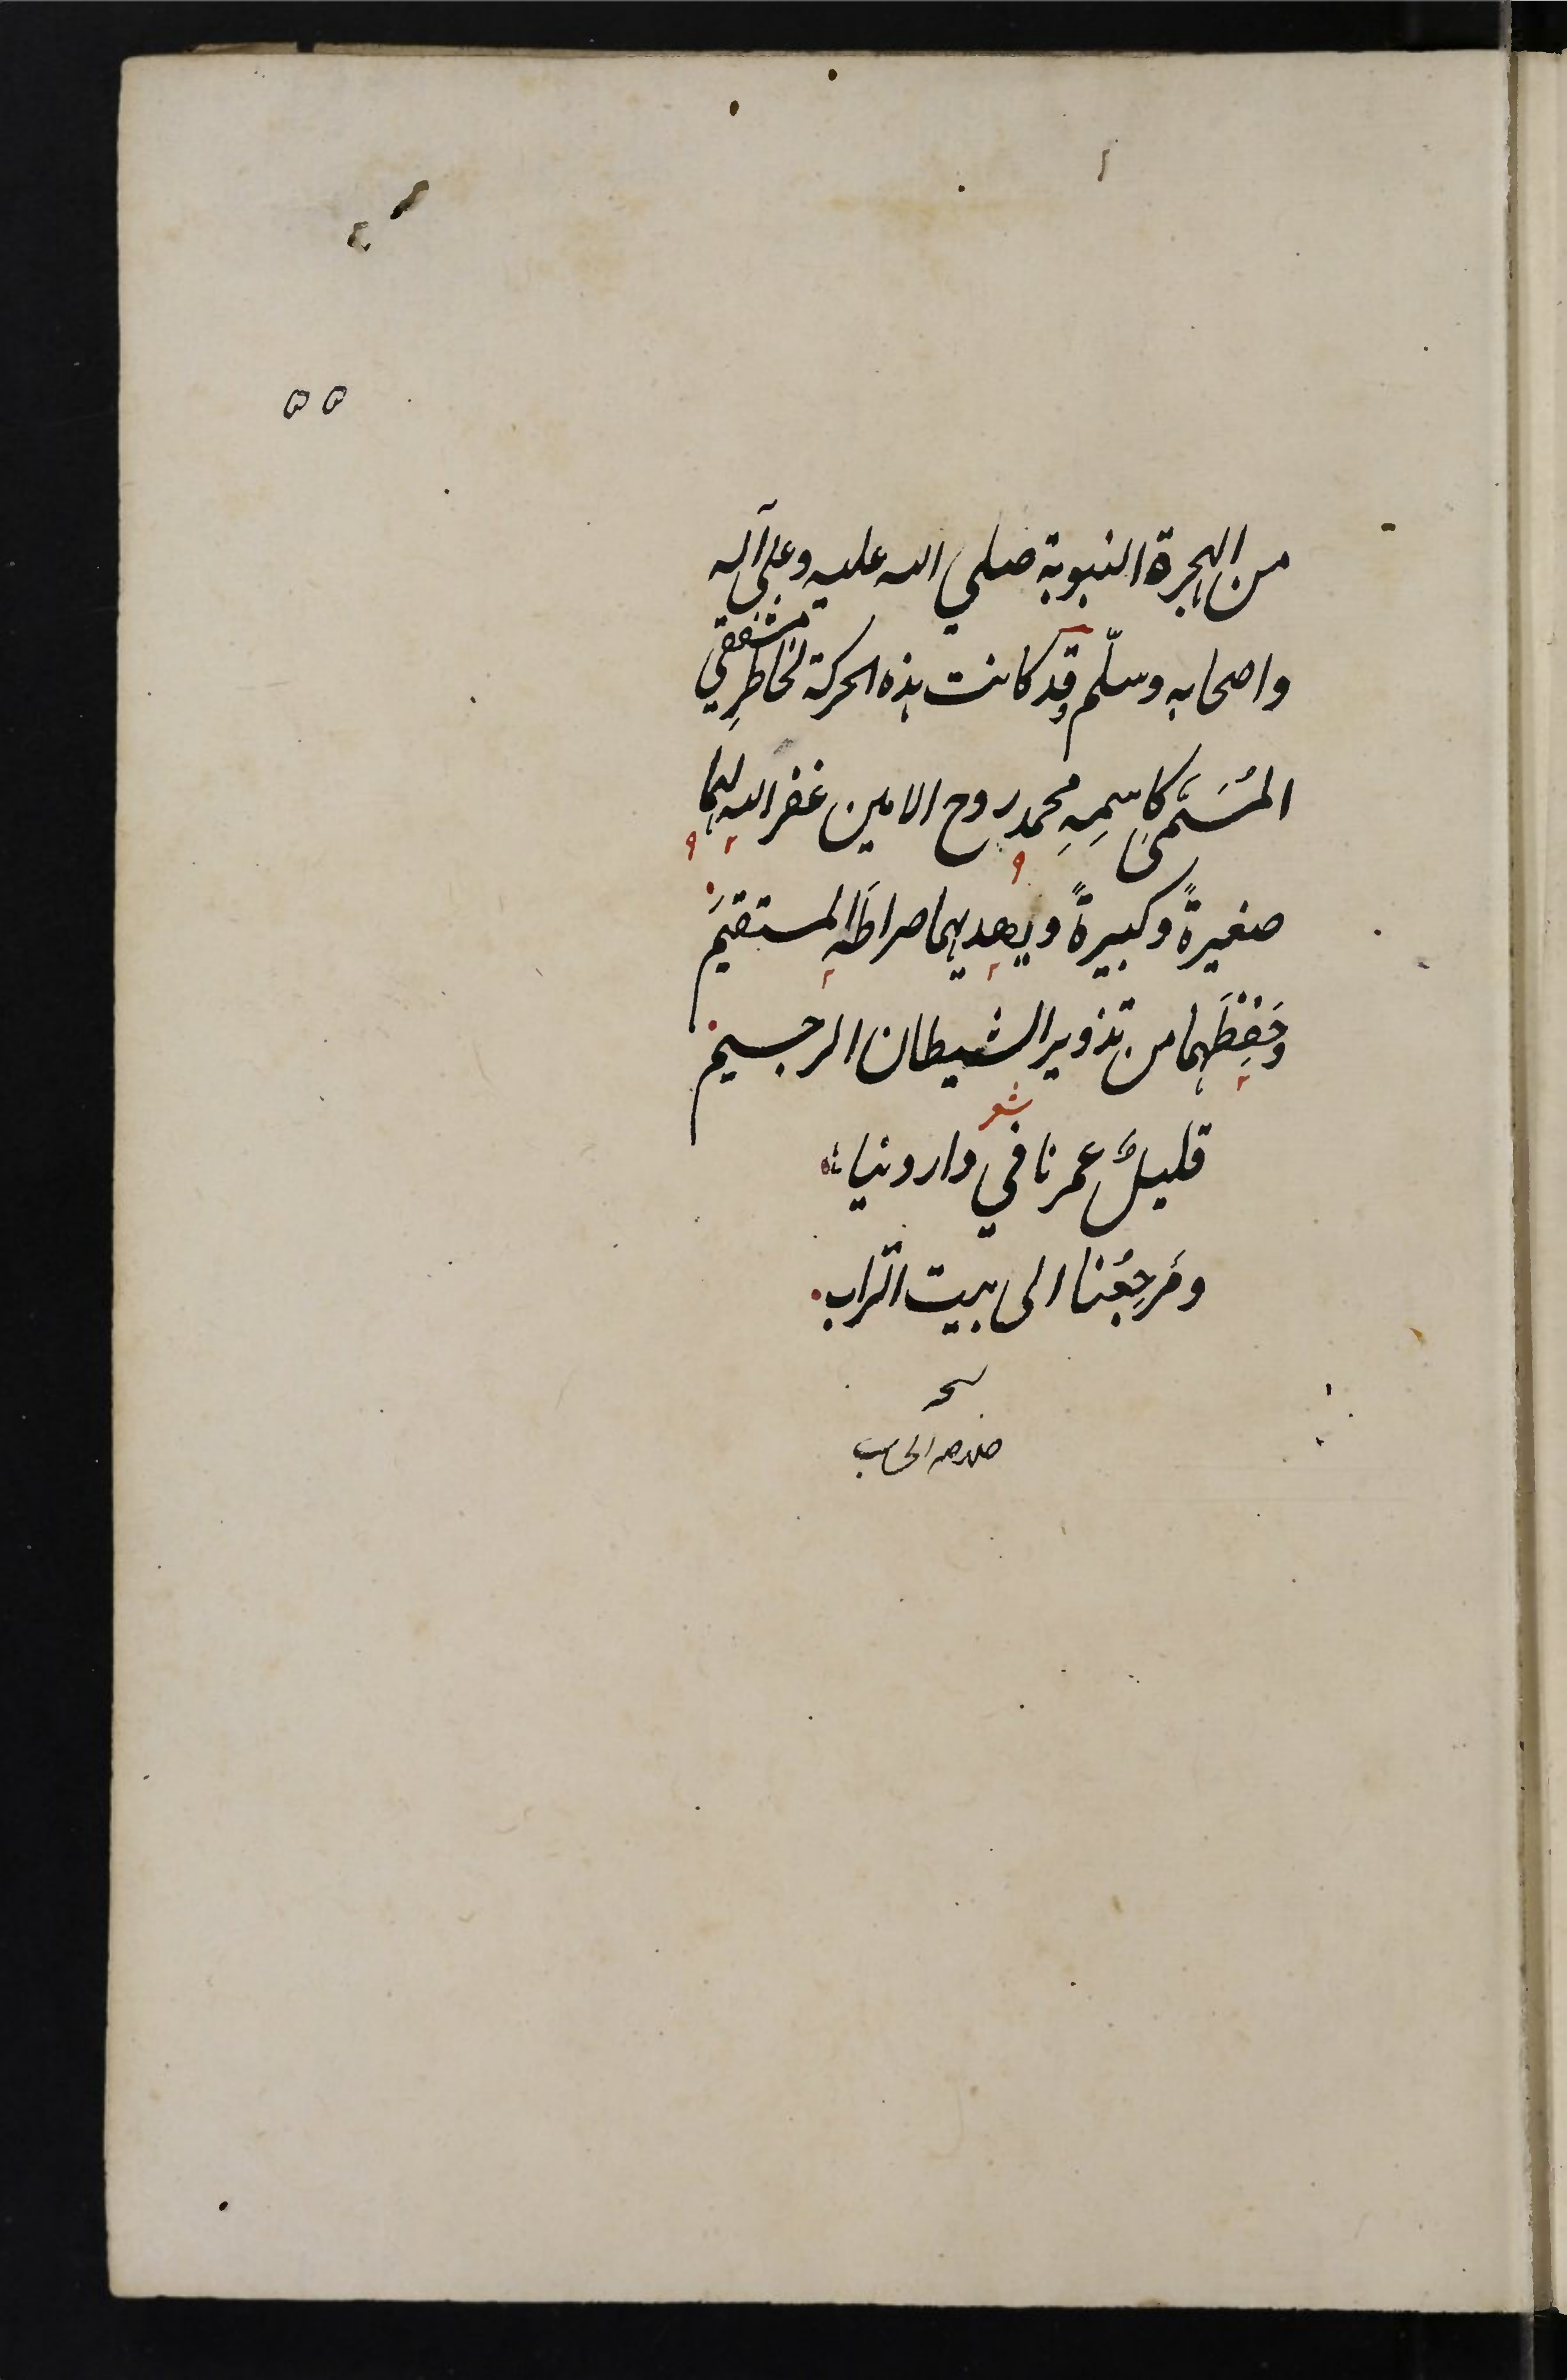 ٥٥
من الهجرة النبوية صلي الله عليه وعلى آله
واصحابه وسلّم وقد كانت هذه الحركة لخاطِرِ مشفقي
المُسَمّى كاسمِهِ محمد روح الامين غفر الله لهما
صغيرةً وكبيرةً ويهديهما صراطَه المستقيمَ
وحَفِظَهما من تذوير الشيطان الرجيم
شعر
قليلٌ عمرنا في دار دنيا
ومَرجِعُنا الى بيت التراب
خلاصه الحساب